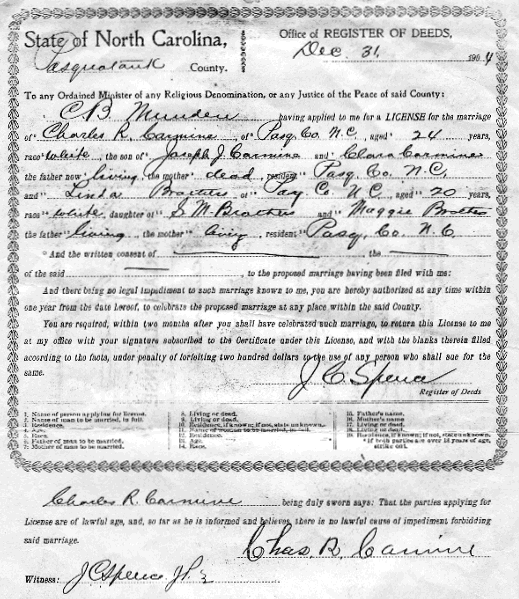 State of North Carolina,
Pasquotank County.
Office of REGISTER OF DEEDS,
Dec. 31 1904
To any Ordained Minister of any Religious Denomination, or any Justice of the Peace of said County:
C B Munden having applied to me for a LICENSE for the marriage
of Charles R. Carmine, of Pasq. Co. N.C, aged 24 years,
race white the son of Joseph J. Carmine and Clara Carmine
the father now living, the mother dead, resident Pasq. Co. N.C,
and Linda Brothers of Pasq Co. N.C. aged 20 years,
race white daughter of S. M. Brothers and Maggie Brothers
the father living, the mother living, resident Pasq. Co. N.C
*And the written consent of , the
of the said , to the proposed marriage having been filed with me:
And there being no legal impediment to such marriage known to me, you are hereby authorized at any time within
one year from the date hereof, to celebrate the proposed marriage at any place within the said County.
You are required, within two months after you shall have celebrated such marriage, to return this License to me
at my office with your signature subscribed to the Certificate under this License, and with the blanks therein filled
according to the facts, under penalty of forfeiting two hundred dollars to the use of any person who shall sue for the
same.
J. C. Spence
Register of Deeds
1. Name of person applying for license.
2. Name of man to be married, in full.
3. Residence.
4. Age.
5. Race.
6. Father of man to be married.
7. Mother of man to be married.
8. Living or dead.
9. Living or dead.
10. Residence, if known; if not, state unknown.
11. Name of woman to be married, in full.
12. Residence.
13. Age.
14. Race.
15. Father's name.
16. Mother's name.
17. Living or dead.
18. Living or dead.
19. Residence, if known; if not, state unknown.
* If both parties are over 18 years of age, strike out.
Charles R. Carmine being duly sworn says: That the parties applying for
License are of lawful age, and, so far as he is informed and believes, there is no lawful cause of impediment forbidding
said marriage.
Chas. R. Carmine
Witness: J C Spence